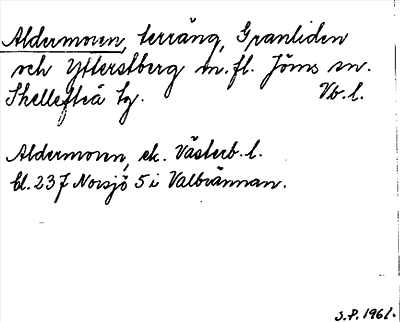 Aldermoren, terräng, Granliden
och Ytterstberg m.fl. Jörns sn.
Skellefteå tg. Vb.l.
Aldermoren, ek. Västerb. l.
bl. 237 Norsjö 5 i Valbrännan.
S.P. 1961.